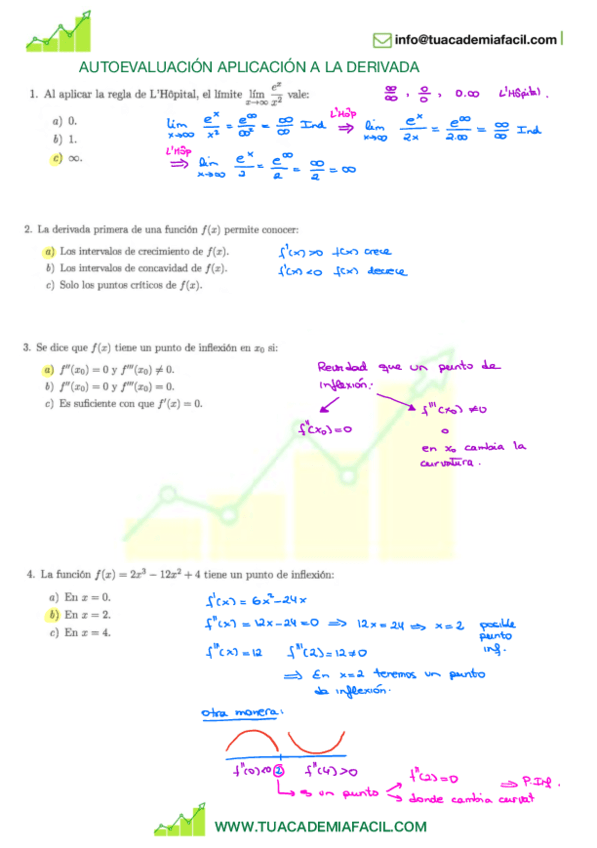 info@tuacademiafacil.com
AUTOEVALUACIÓN APLICACIÓN A LA DERIVADA
1. Al aplicar la regla de L'Hôpital, el límite lím x→∞ e^x/x^2 vale:
∞/∞ , 0/0 , 0.∞ L'Hôpital.
a) 0.
b) 1.
c) ∞.
lim x→∞ e^x/x^2 = e^∞/∞^2 = ∞/∞ Ind L'Hôp ⇒ lim x→∞ e^x/2x = e^∞/2.∞ = ∞/∞ Ind
L'Hôp ⇒ lim x→∞ e^x/2 = e^∞/2 = ∞/2 = ∞
2. La derivada primera de una función f(x) permite conocer:
a) Los intervalos de crecimiento de f(x).
b) Los intervalos de concavidad de f(x).
c) Solo los puntos críticos de f(x).
f'(x)>0 f(x) crece
f'(x)<0 f(x) decrece
3. Se dice que f(x) tiene un punto de inflexión en x₀ si:
a) f''(x₀) = 0 y f'''(x₀) ≠ 0.
b) f''(x₀) = 0 y f'''(x₀) = 0.
c) Es suficiente con que f'(x) = 0.
Recordad que un punto de
inflexión:
f''(x₀)=0
f'''(x₀) ≠0
o
en x₀ cambia la
curvatura.
4. La función f(x) = 2x³ − 12x² + 4 tiene un punto de inflexión:
a) En x = 0.
b) En x = 2.
c) En x = 4.
f'(x) = 6x²-24x
f''(x) = 12x-24=0 ⇒ 12x=24 ⇒ x=2 posible
punto
inf.
f'''(x)=12 f'''(2)=12≠0
⇒ En x=2 tenemos un punto
de inflexión.
otra manera:
f''(0)<0 2 f''(4)>0
es un punto
f''(2)=0
donde cambia curvat
⇒ P.Inf.
WWW.TUACADEMIAFACIL.COM